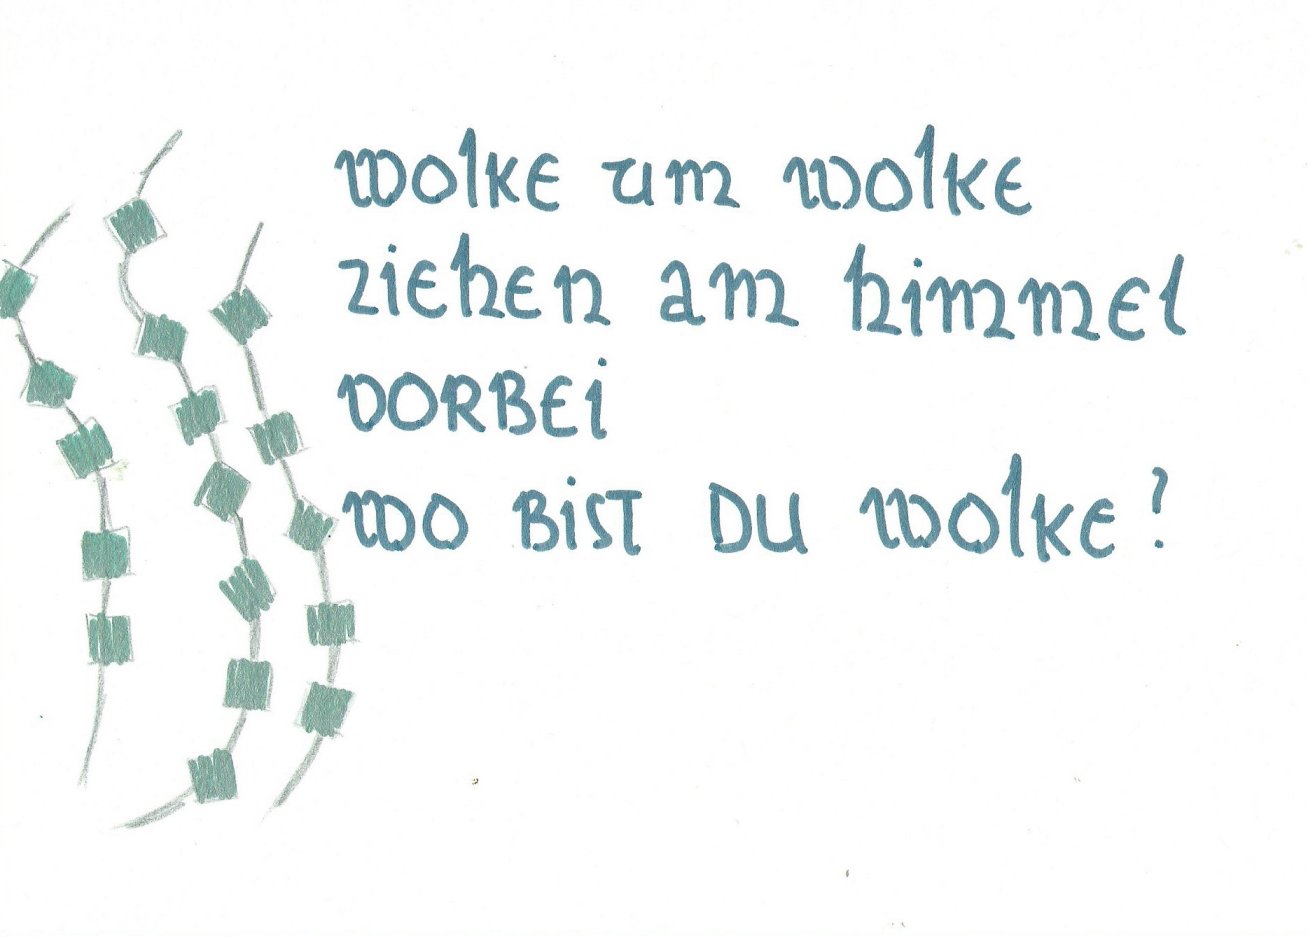 wolke um wolke
ziehen am himmel
vorbei
wo bist du wolke?